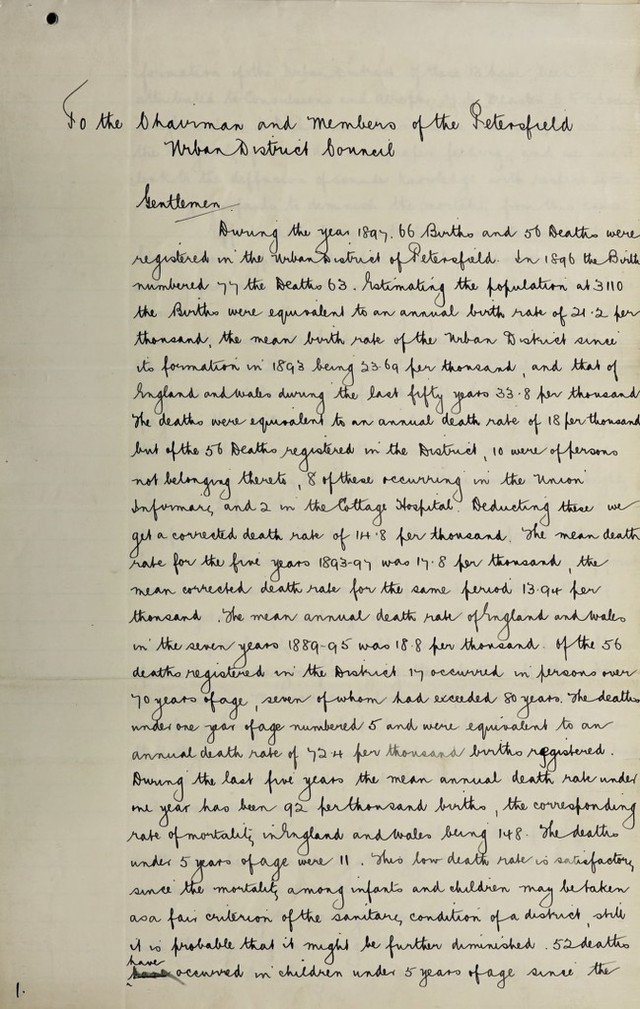 To the Chairman and Members of the Petersfield
Urban District Council
Gentlemen.
During the year 1897. 66 Births and 56 Deaths were
registered in the Urban District of Petersfield. In 1896 the Birth
numbered 77 the Deaths 63. Estimating the population at 3110
the Births were equivalent to an annual birth rate of 21.2 per
thousand, the mean birth rate of the Urban District since
its formation in 1893 being 23.69 per thousand, and that of
England and Wales during the last fifty years 33.8 per thousand
The deaths were equivalent to an annual death rate of 18 per thousand
but of the 56 Deaths registered in the District, 10 were of persons
not belonging thereto, 8 of these occurring in the Union
Infirmary, and 2 in the Cottage Hospital. Deducting these we
get a corrected death rate of 14.8 per thousand. The mean death
rate for the five years 1893-97 was 17.8 per thousand, the
mean corrected death rate for the same period 13.94 per
thousand. The mean annual death rate of England and Wales
in the seven years 1889-95 was 18.8 per thousand. Of the 56
deaths registered in the District 17 occurred in persons over
70 years of age, seven of whom had exceeded 80 years. The deaths
under one year of age numbered 5 and were equivalent to an
annual death rate of 72.4 per thousand births registered.
During the last five years the mean annual death rate under
one year has been 92 per thousand births, the corresponding
rate of mortality in England and Wales being 148. The deaths
under 5 years of age were 11. This low death rate is satisfactory
since the mortality among infants and children may be taken
as a fair criterion of the sanitary condition of a district, still
it is probable that it might be further diminished. 52 deaths
have
occurred in children under 5 years of age since the
1.